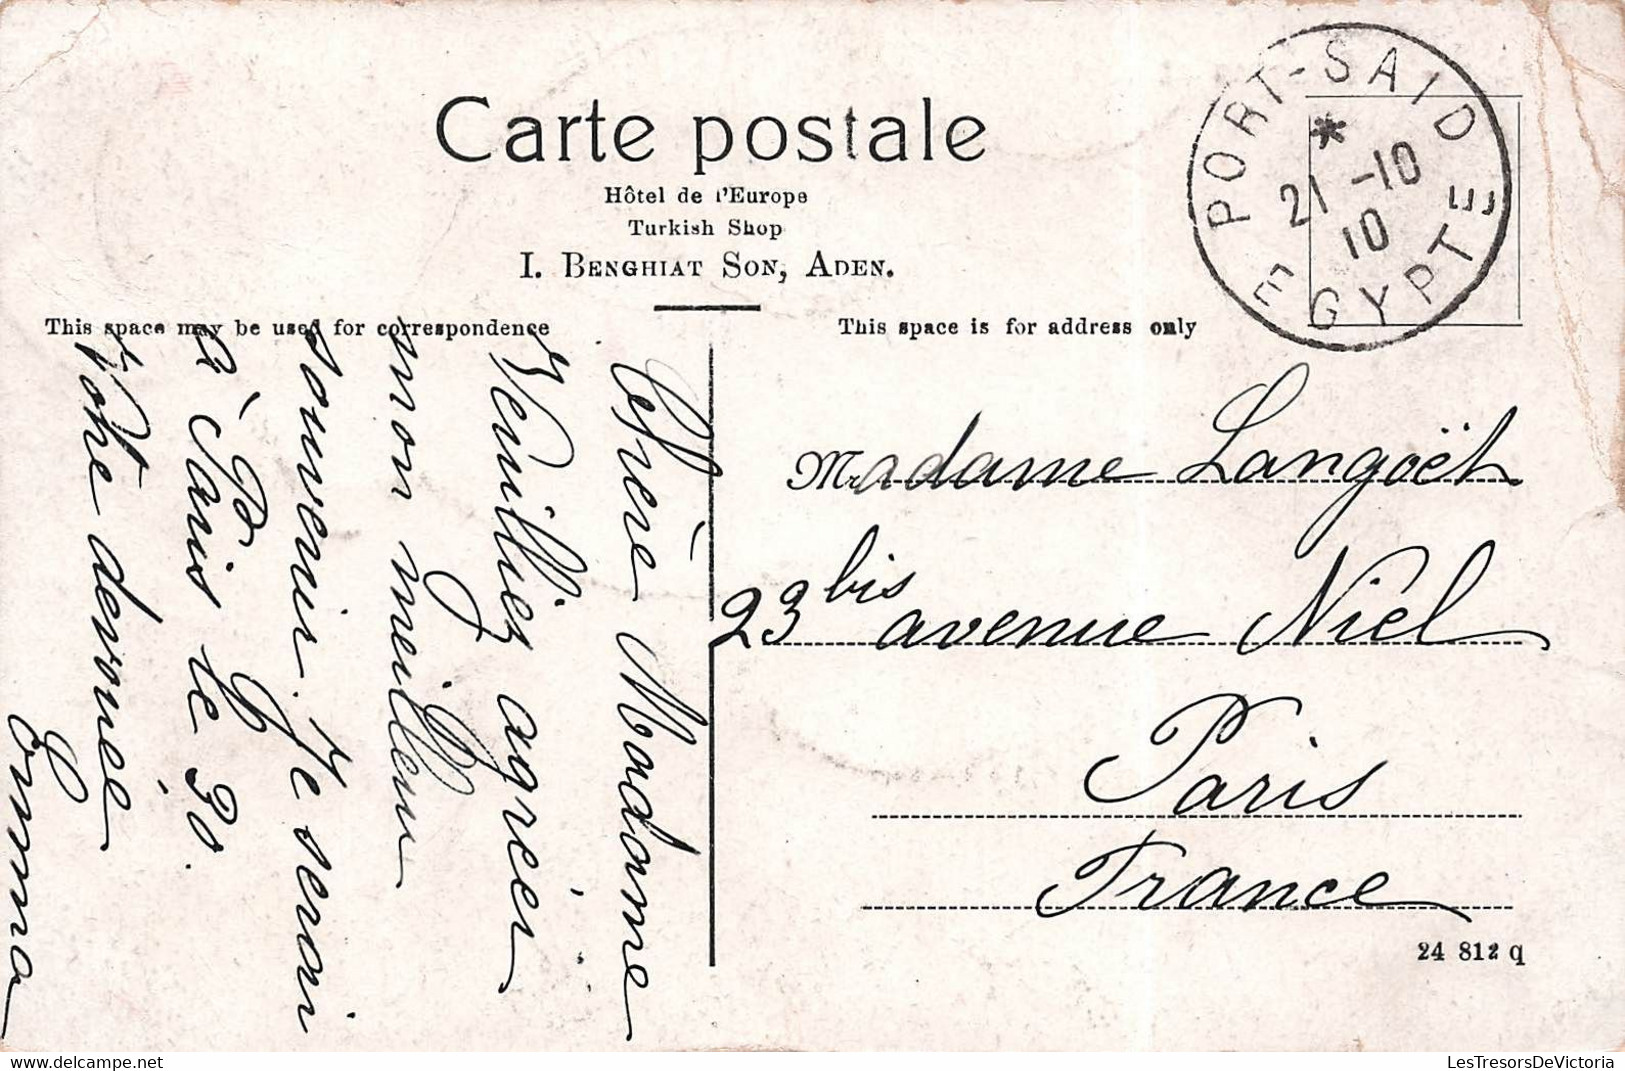 Carte postale
Hôtel de l'Europe
Turkish Shop
I. BENGHIAT SON, ADEN.
PORT-SAID
21 -10
10
EGYPTE
This space may be used for correspondence
This space is for address only
Chère Madame
Veuillez agréer
mon meilleur
souvenir. Je serai
à Paris le 30.
Votre dévouée
Emma
Madame Langoët
23 bis avenue Niel
Paris
France
24 812 q
LesTresorsDeVictoria